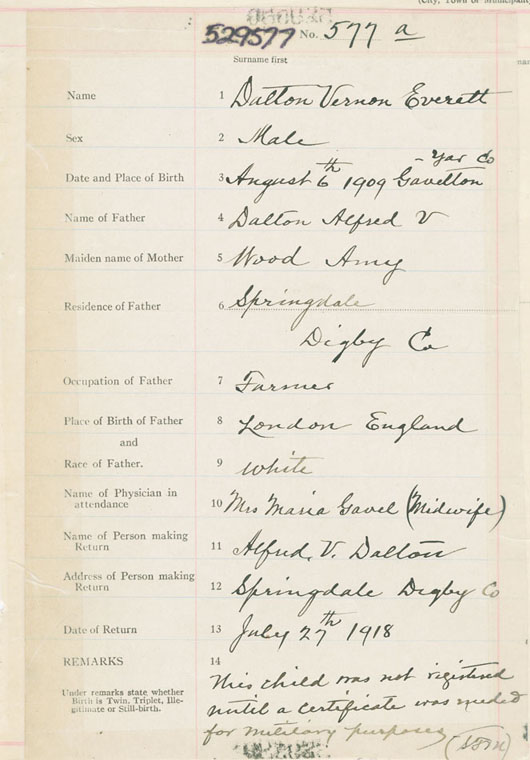 (City, Town or Municipality
529577 No. 577 a
Surname first
Name 1 Dalton Vernon Everett
Sex 2 Male
- Yar Co
Date and Place of Birth 3 August 6th 1909 Gavelton
Name of Father 4 Dalton Alfred V
Maiden name of Mother 5 Wood Amy
Residence of Father 6 Springdale
Digby Co
Occupation of Father 7 Farmer
Place of Birth of Father 8 London England
and
Race of Father. 9 white
Name of Physician in
attendance 10 Mrs Maria Gavel (Midwife)
Name of Person making
Return 11 Alfred. V. Dalton
Address of Person making
Return 12 Springdale Digby Co
Date of Return 13 July 27th 1918
REMARKS 14
This child was not registered
Under remarks state whether
Birth is Twin, Triplet, Ille-
gitimate or Still-birth.
until a certificate was needed
for military purposes